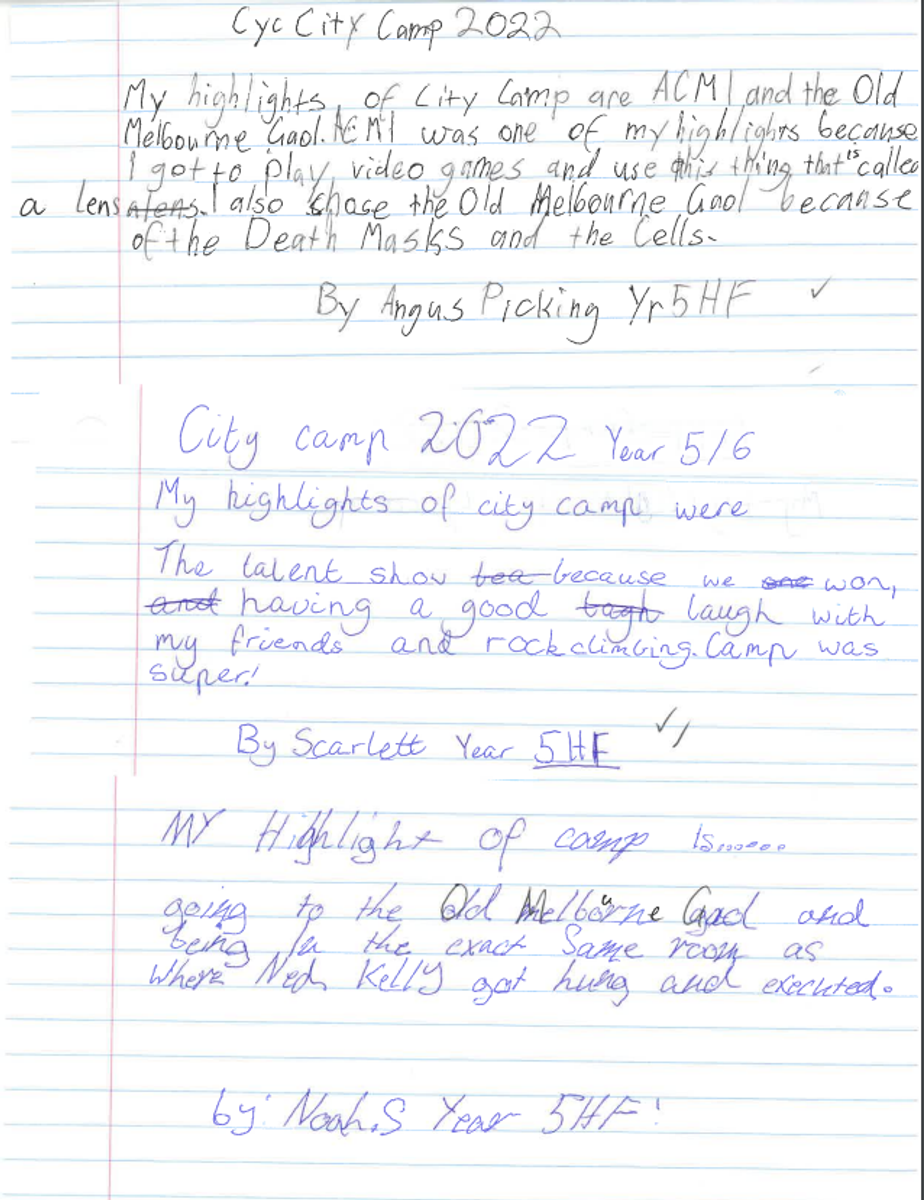 Cyc City Camp 2022
My highlights of City Camp are ACMI and the Old
Melbourne Gaol. ACMI was one of my highlights because
I got to play video games and use this thing that is called
a lens alens. I also chose the Old Melbourne Gaol because
of the Death Masks and the Cells.
By Angus Picking Yr 5HF
City camp 2022 Year 5/6
My highlights of city camp were
The talent show bea because we one won,
and having a good lagh laugh with
my friends and rockclimbing. Camp was
super!
By Scarlett Year 5HF
MY Highlight of camp is.......
going to the Old Melbourne Gaol and
being in the exact same room as
where Ned Kelly got hung and executed.
by: Noah.S Year 5HF!